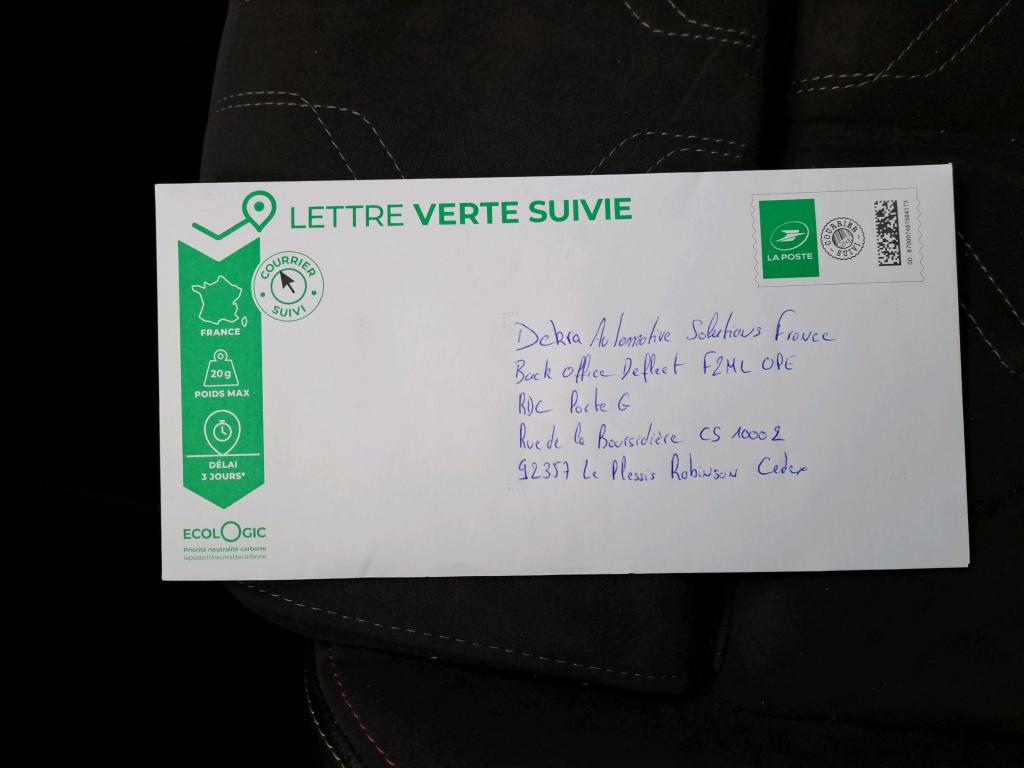 LETTRE VERTE SUIVIE
COURRIER
SUIVI
FRANCE
20g
POIDS MAX
DÉLAI
3 JOURS*
ECOLOGIC
Priorité neutralité carbone
laposte.fr/neutralitecarbone
LA POSTE
COURRIER
SUIVI
Dekra Automotive Solutions France
Back Office Defleet F2ML OPE
RDC Porte G
Rue de la Boursidière CS 10002
92357 Le Plessis Robinson Cedex